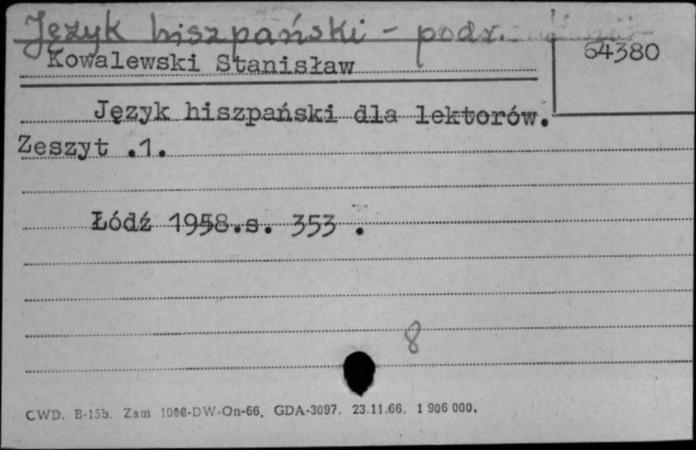 Język hiszpański - podr.
64380
Kowalewski Stanisław
Język hiszpański dla lektorów.
Zeszyt .1.
Łódź 1958.s. 353 .
8
CWD. B-15b. Zam 1066-DW-On-66. GDA-3097. 23.11.66. 1 906 000.